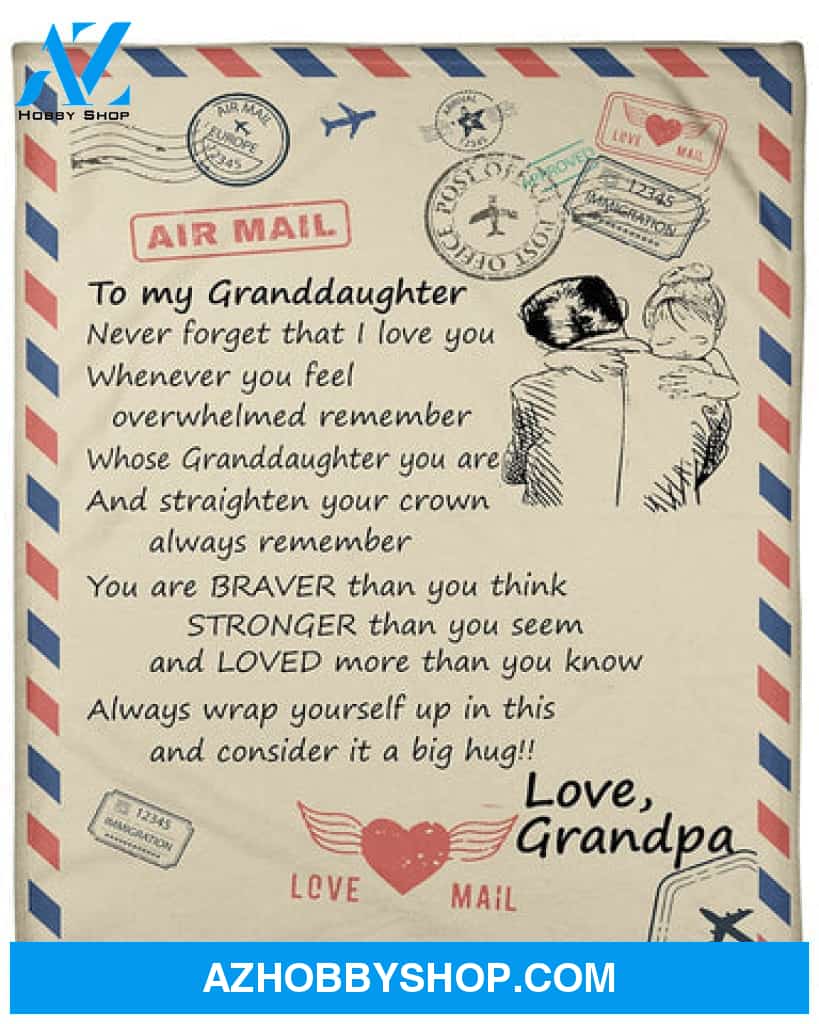 AZ
HOBBY SHOP
AIR MAIL
EUROPE
12345
ARRIVAL
12345
LOVE MAIL
APPROVED
POST OFFICE POST OFFICE
12345
IMMIGRATION
AIR MAIL
To my Granddaughter
Never forget that I love you
Whenever you feel
overwhelmed remember
Whose Granddaughter you are
And straighten your crown
always remember
You are BRAVER than you think
STRONGER than you seem
and LOVED more than you know
Always wrap yourself up in this
and consider it a big hug!!
Love,
Grandpa
12345
IMMIGRATION
LOVE MAIL
AZHOBBYSHOP.COM